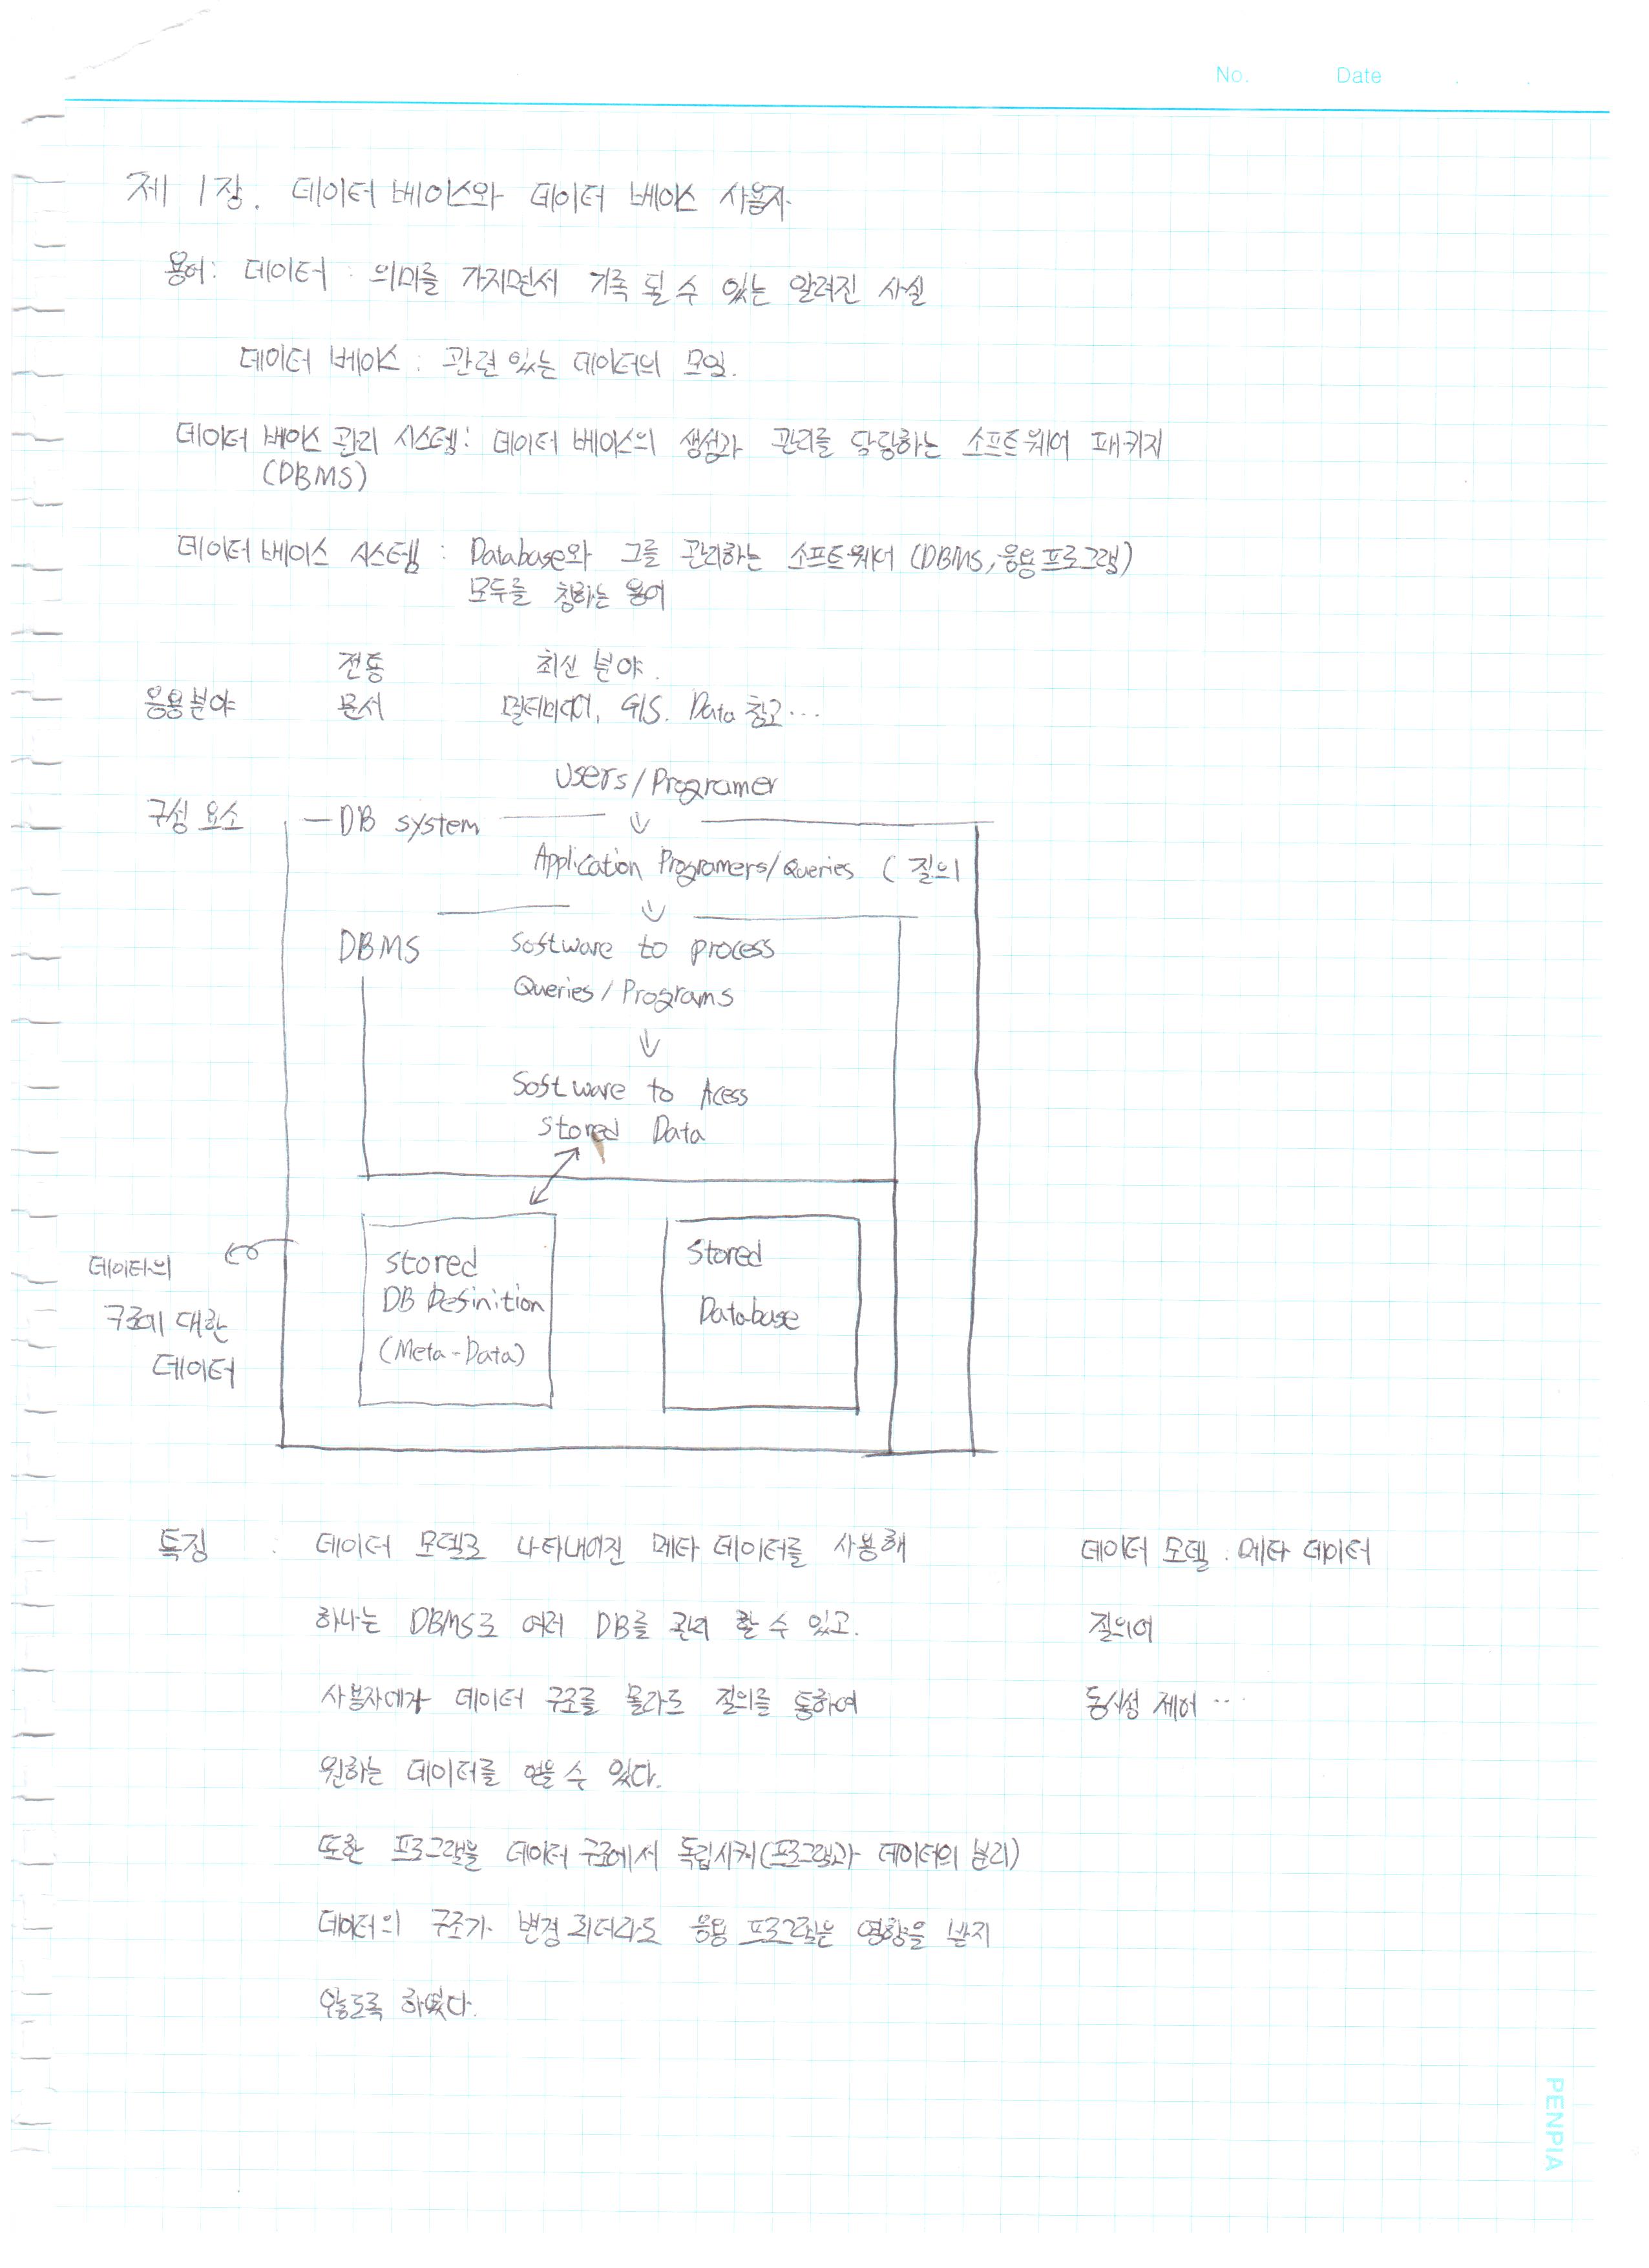 No. Date
제 1장. 데이터 베이스와 데이터 베이스 사용자
용어: 데이터 : 의미를 가지면서 기록 될 수 있는 알려진 사실
데이터 베이스 : 관련 있는 데이터의 모임.
데이터 베이스 관리 시스템: 데이터 베이스의 생성과 관리를 담당하는 소프트웨어 패키지
(DBMS)
데이터 베이스 시스템 : Database와 그를 관리하는 소프트웨어 (DBMS, 응용프로그램)
모두를 칭하는 용어
전통 최신 분야.
응용분야 문서 멀티미디어, GIS. Data 창고...
Users/Programer
구성 요소 DB system
Application Programers/Queries ( 질의
DBMS Software to process
Queries / Programs
Software to Acess
Stored Data
데이터의
구조에 대한
데이터
Stored
DB Definition
(Meta-Data)
Stored
Database
특징 : 데이터 모델로 나타내어진 메타 데이터를 사용해 데이터 모델 : 메타 데이터
하나는 DBMS로 여러 DB를 관리 할 수 있고. 질의어
사용자에가 데이터 구조를 몰라도 질의를 통하여 동시성 제어 ...
원하는 데이터를 얻을 수 있다.
또한 프로그램을 데이터 구조에서 독립시켜(프로그램과 데이터의 분리)
데이터의 구조가 변경 되더라도 응용 프로그램은 영향을 받지
않도록 하였다.
PENPIA